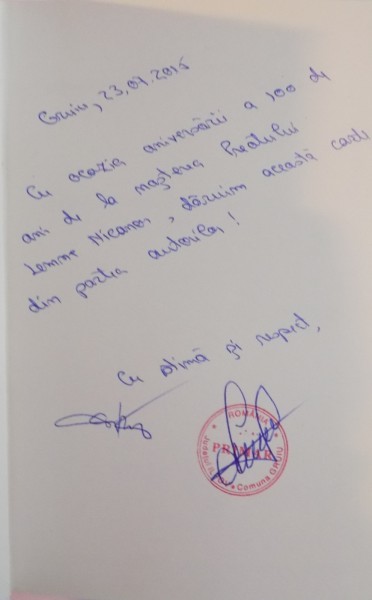 Gruiu, 23.07.2015
Cu ocazia aniversării a 100 de
ani de la nașterea Preotului
Lemne Nicanor, dăruim această carte
din partea autorilor!
Cu stimă și respect,
ROMÂNIA
PRIMAR
Județul
Comuna GRUIU